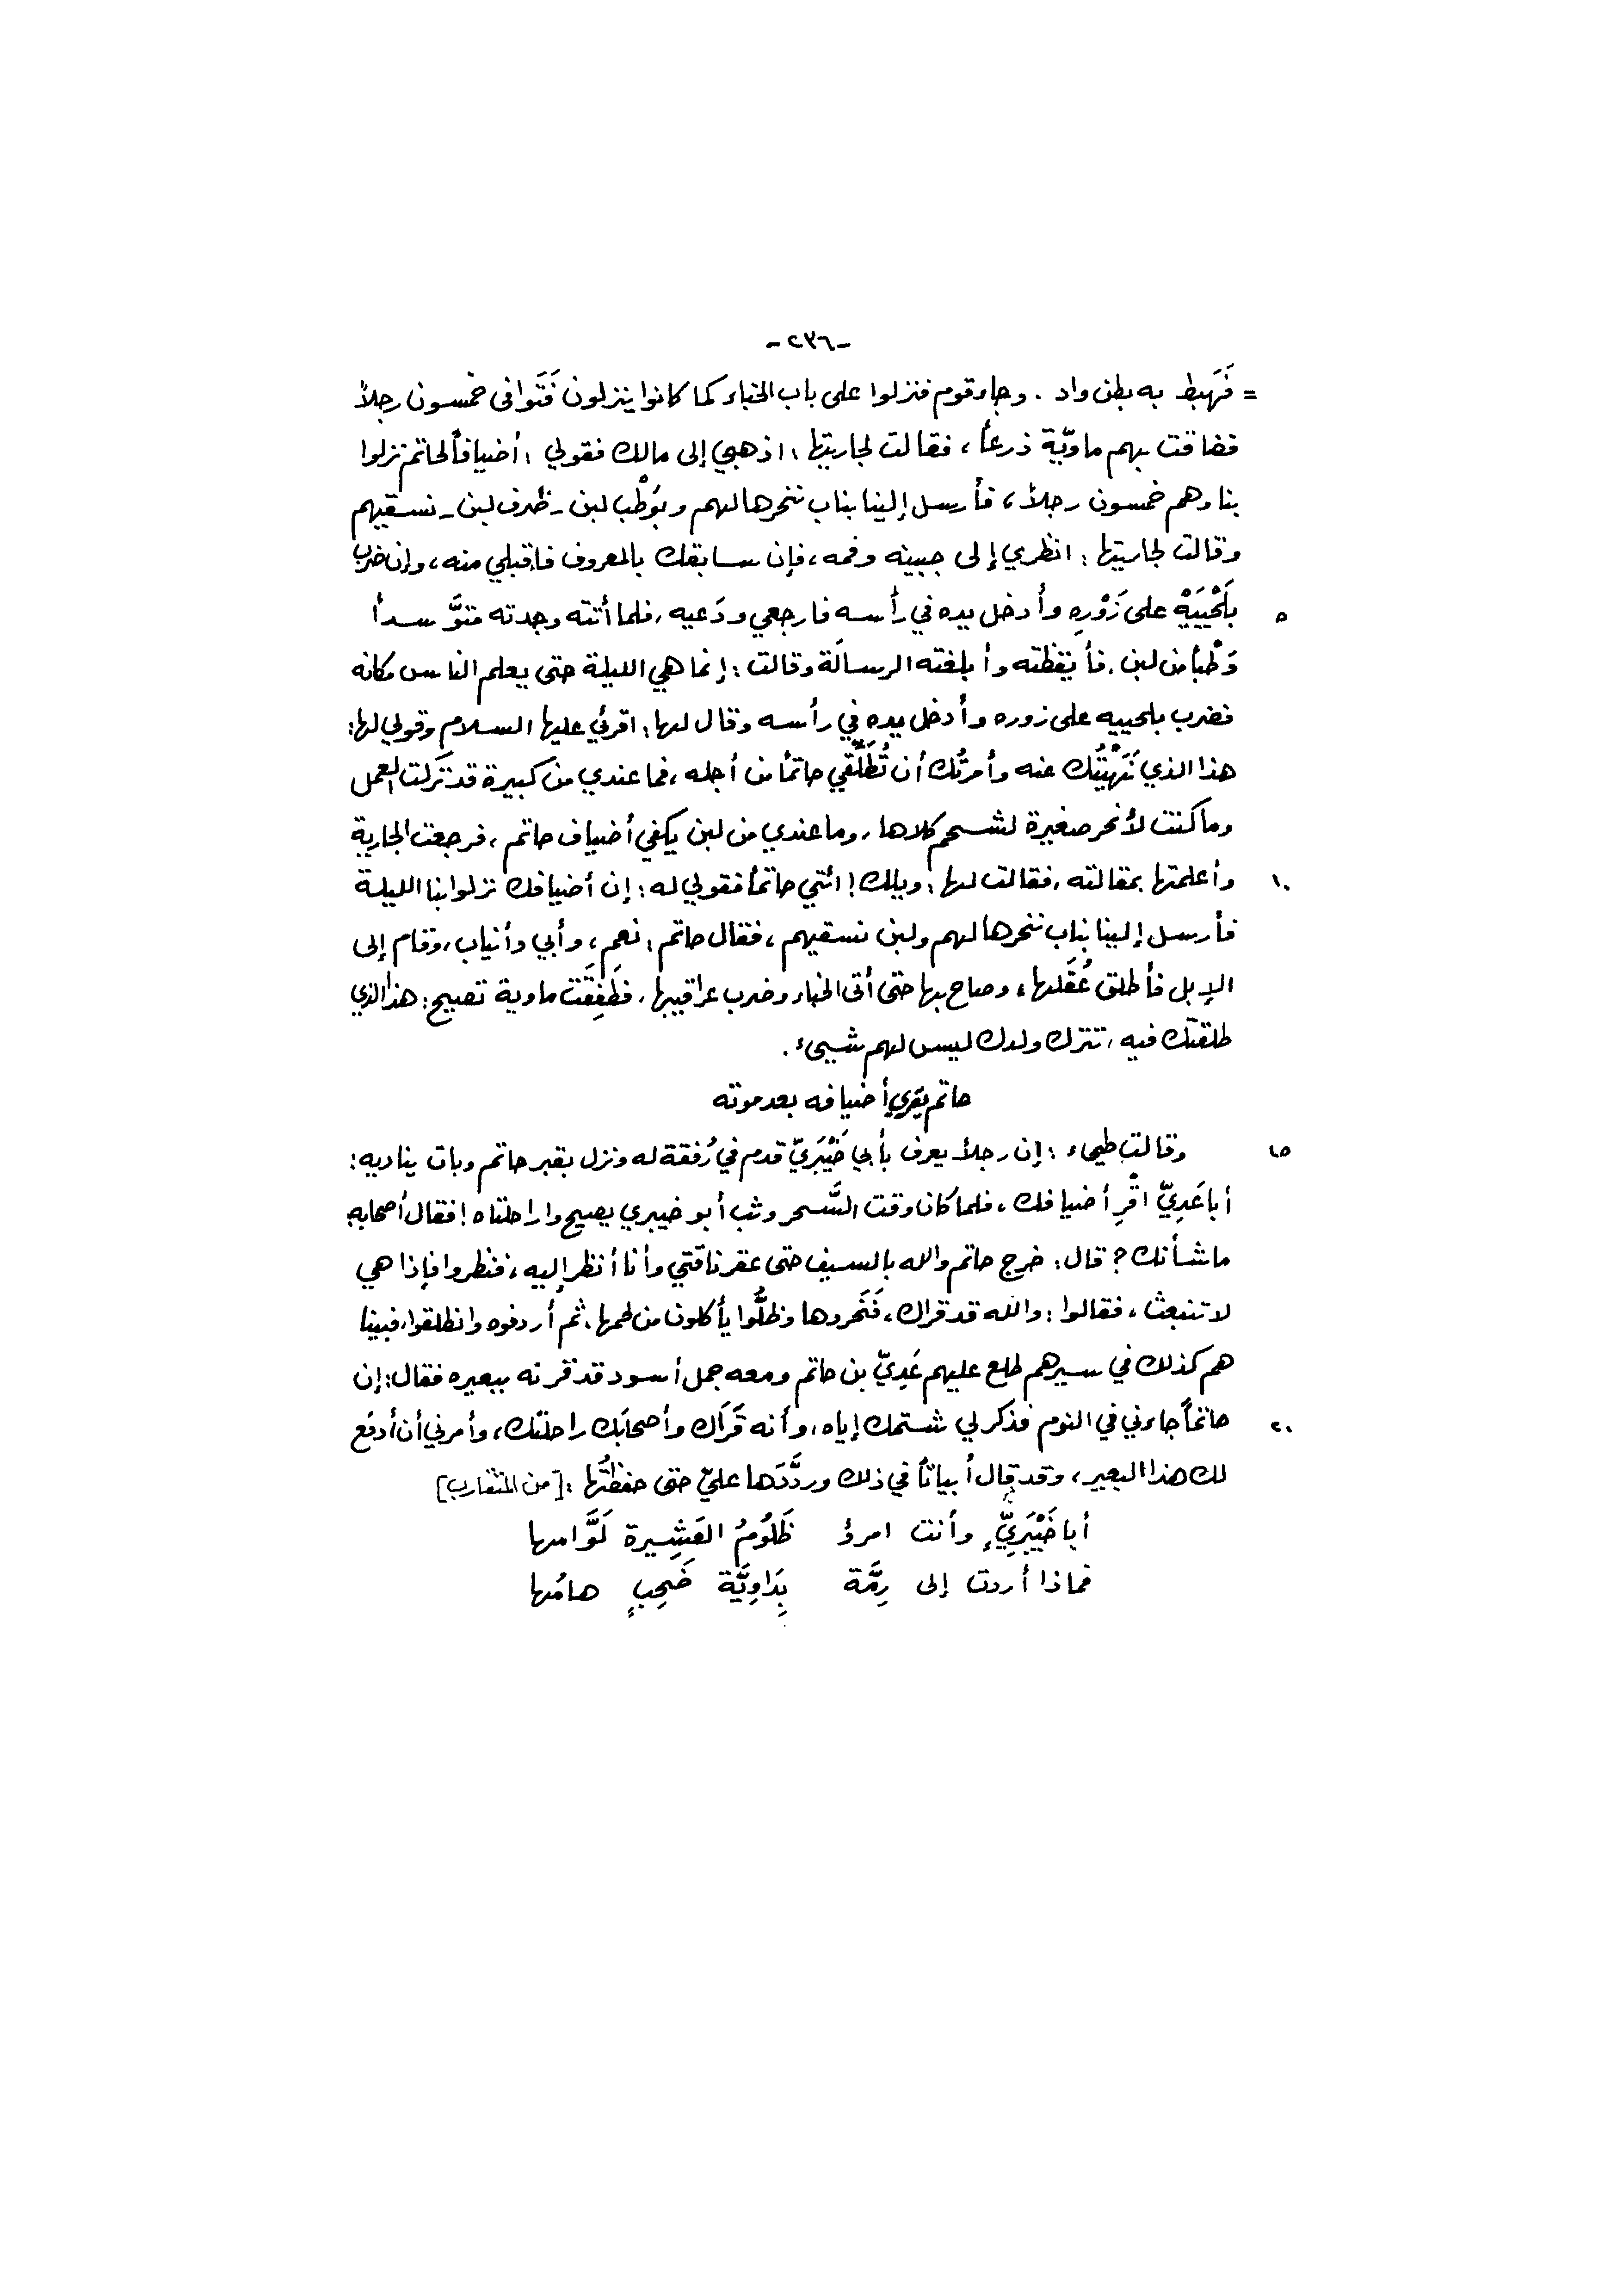 -٢٣٦-
= فَهَبط به بطن واد . وجاء قوم فنزلوا على باب الخباء كما كانوا ينزلون فَتَوافى خمسون رجلاً
فضاقت بهم ماويّة ذرعاً ، فقالت لجاريتها : اذهبي إلى مالك فقولي : أضيافاً لحاتم نزلوا
بنا وهم خمسون رجلاً ، فأرسل إلينا بناب ننحرها لهم وبوَطْب لبن - ظرف لبن - نسقيهم
وقالت لجاريتها : انظري إلى جبينه وفمه ، فإن سابقك بالمعروف فاقبلي منه ، وإن ضرب
٥ بلَحْيَيْهِ على زَوْرِه وأدخل يده في رأسه فارجعي ودَعيه ، فلما أتته وجدته متوَّسداً
وَطْباً من لبن . فأيقظته وأبلغته الرسالَة وقالت : إنما هي الليلة حتى يعلم الناس مكانه
فضرب بلحييه على زوره وأدخل يده في رأسه وقال لها : اقرئي عليها السلام وقولي لها :
هذا الذي نَهَيْتُك عنه وأمرتُك أن تُطَلِّقي حاتماً من أجله ، فما عندي من كبيرة قد تركت العمل
وما كنت لأنحر صغيرة لشحم كلاها ، وما عندي من لبن يكفي أضياف حاتم ، فرجعت الجارية
١٠ وأعلمتها بمقالته ، فقالت لها : ويلك ! ائتي حاتماً فقولي له : إن أضيافك نزلوا بنا الليلة
فأرسل إلينا بناب ننحرها لهم ولبن نسقيهم ، فقال حاتم : نعم ، وأبي وأنياب ، وقام إلى
الإبل فأطلق عُقَلها ، وصاح بها حتى أتى الخباء وضرب عراقيبها ، فطَفِقَت ماوية تصيح : هذا الذي
طلقتك فيه ، تترك ولدك ليس لهم شيىء .
حاتم يقري أضيافه بعد موته
١٥ وقالت طيىء : إن رجلاً يعرف بأبي خَيْبَريّ قدم في رُفقة له ونزل بقبر حاتم وبات يناديه :
أبا عَدِيّ اقْرِ أضيافك ، فلما كان وقت السَّحر وثب أبو خيبري يصيح واراحلتاه ! فقال أصحابه
ما شأنك ؟ قال : خرج حاتم والله بالسيف حتى عقر ناقتي وأنا أنظر إليه ، فنظروا فإذا هي
لا تنبعث ، فقالوا : والله قد قراك ، فَنَحروها وظلُّوا يأكلون من لحمها ، ثم أردفوه وانطلقوا ، فبينا
هم كذلك في سيرهم طلع عليهم عَدِيّ بن حاتم ومعه جمل أسود قد قرنه ببعيره فقال : إن
٢٠ حاتماً جاءني في النوم فذكر لي شتمك إياه ، وأنه قَرَاك وأصحابَك راحلتك ، وأمرني أن أدفع
لك هذا البعير ، وقد قال أبياتاً في ذلك وردَّدَها عليّ حتى حفظتُها : [من المتقارب]
أبا خَيْبَرِيٍّ وأنت امرؤ ظَلُومُ العَشِيرة لَوَّامها
فماذا أردت إلى رِمَّة بِدَاوِيَّة صَخِبٍ هامُها